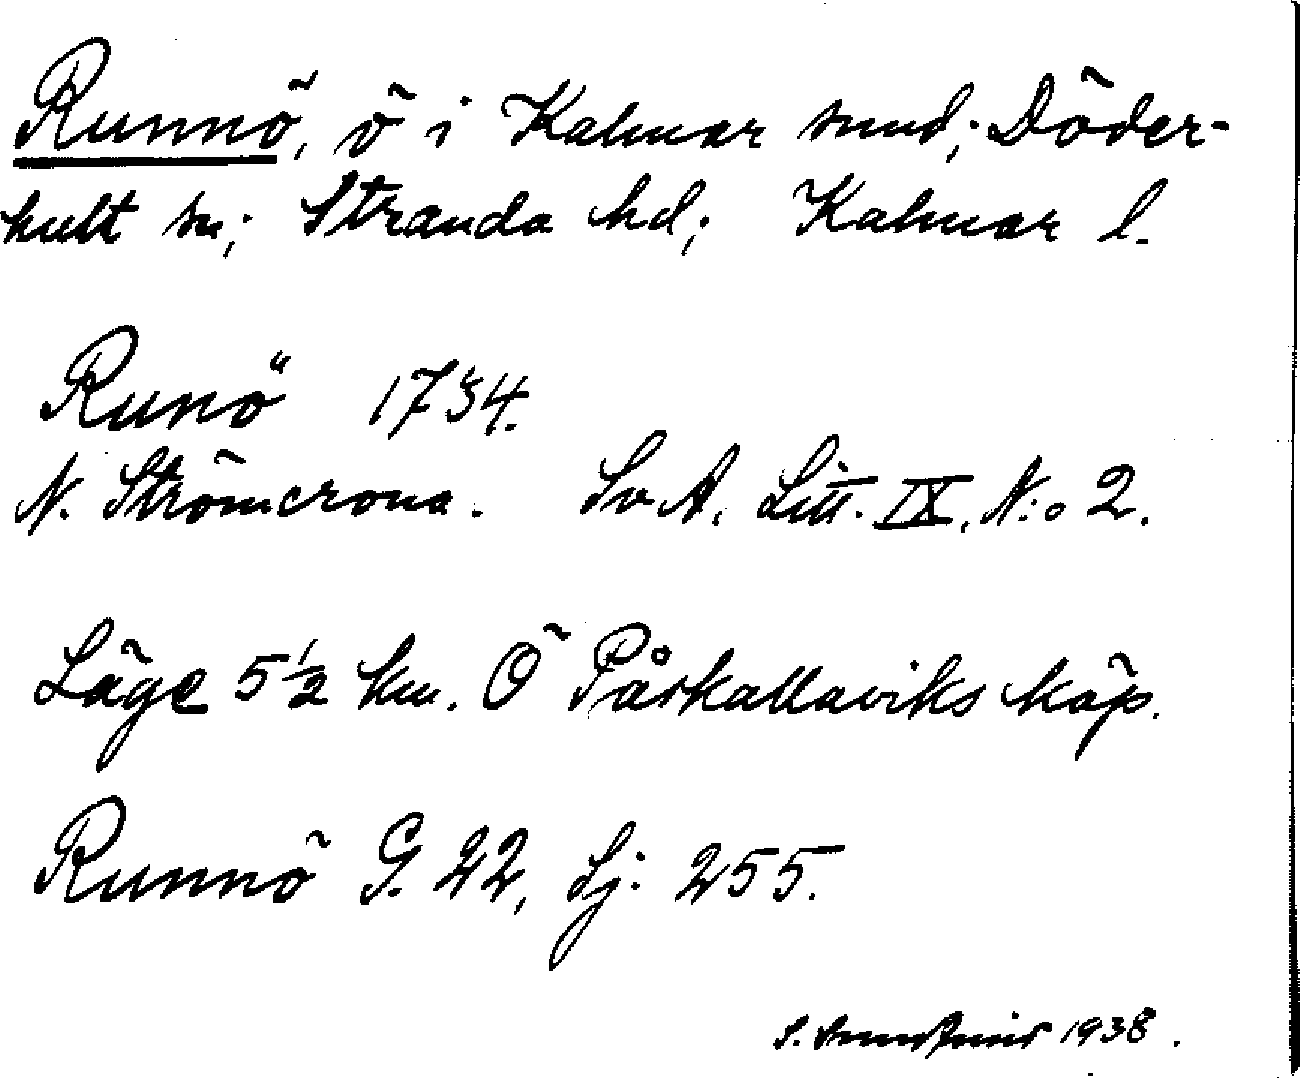 Runnö, ö i Kalmar sund; Döder-
hult sn; Stranda hd; Kalmar l.
Runö 1734.
N. Strömcrona. Sv A. Litt. IX, N:o 2.
Läge 5½ km. Ö Påskallaviks köp.
Runnö G. 22, Sj: 255.
S. 1938.